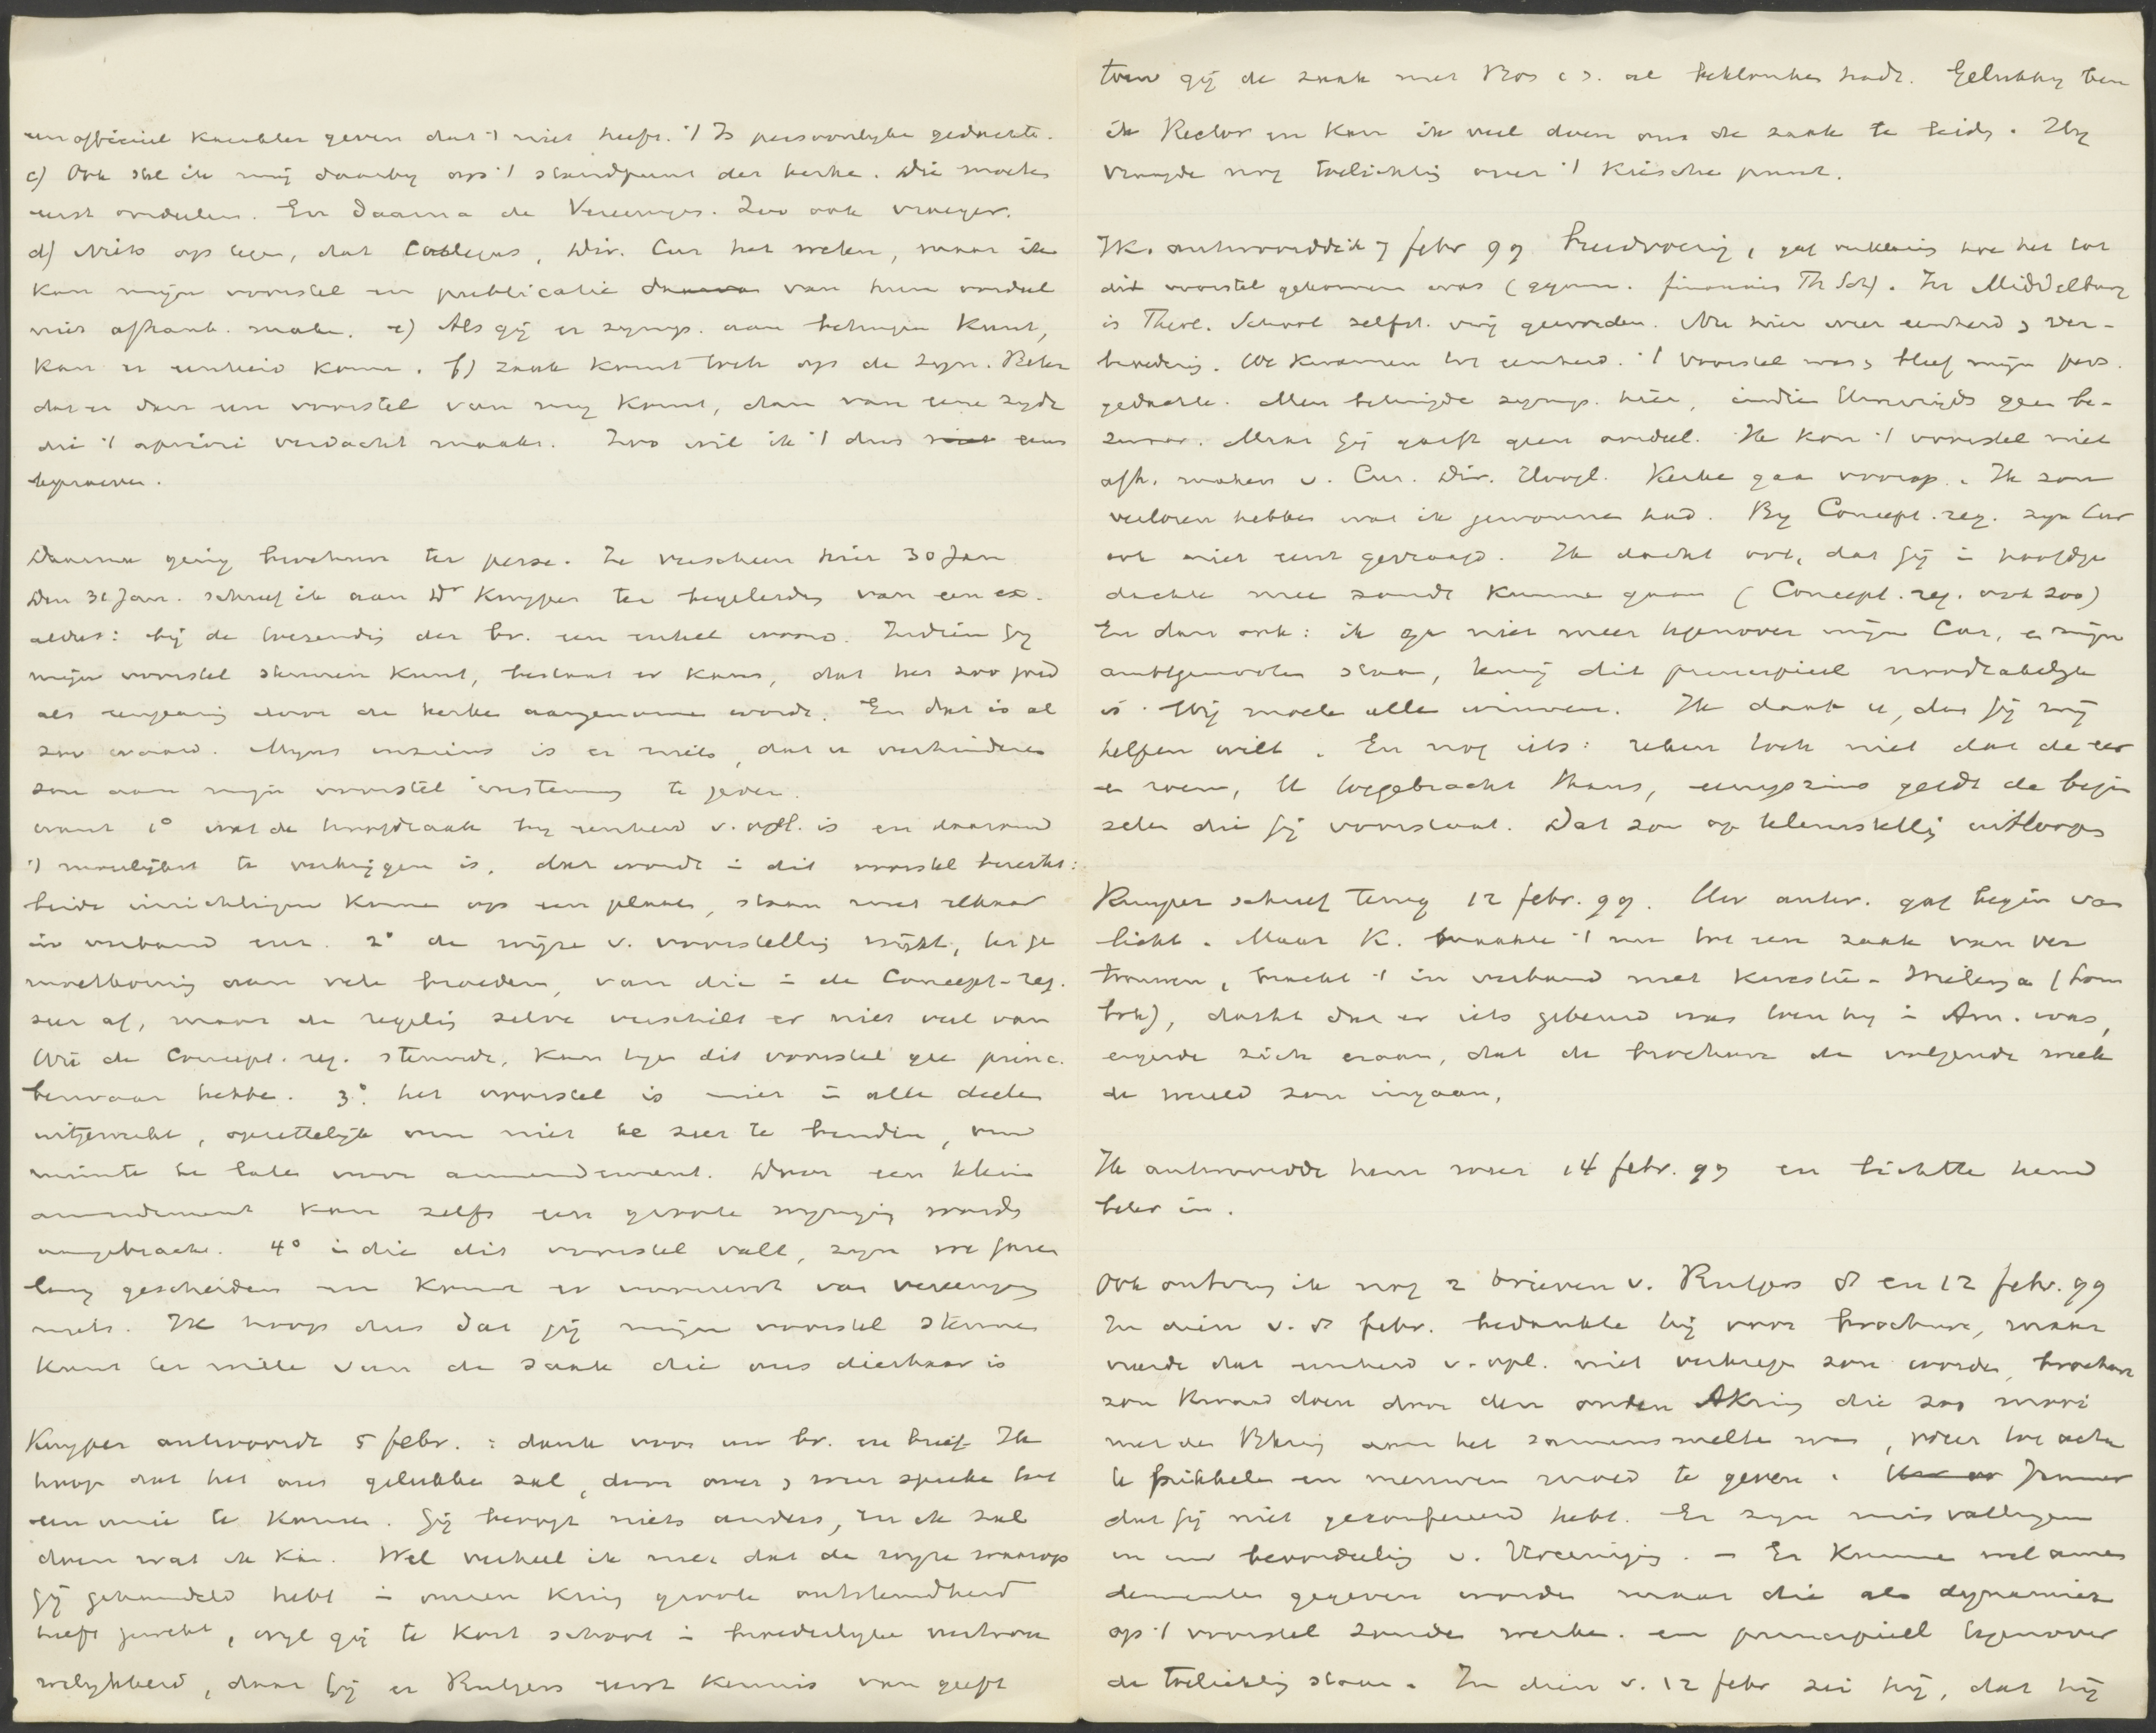 een officieel karakter geven dat 't niet heeft. 't Is persoonlyke gedachte.
c) Ook stel ik mij daarby op 't standpunt der kerke. Die moeten
eerst oordeelen. En daarna de Vereenigin. Zoo ook vroeger.
d) Niets op tegen, dat Collegas, Dir. Cur het weten, maar ik
kan mijn voorstel en publicatie daarvan van hun oordeel
niet afhank. make. e) Als gij er symp. aan betuigen kunt,
kan er eenheid kome. f) zaak komt toch op de Syn. Beter
dat er dan een voorstel van my komt, dan van eene zyde
die 't apriori verdacht maakt. Zoo wil ik 't dus eens
beproeven.
Daarna ging brochure ter perse. Ze verscheen hier 30 Jan
Den 31 Jan. schreef ik aan Dr Kuyper ter begeleidg van een ex.
aldus: bij de toezending der br. een enkel woord. Indien gij
mijn voorstel steunen kunt, bestaat er kans, dat het zoo goed
als eenparig door de kerke aangenome wordt. En dat is al
zoo waard. Myns inziens is er niets, dat u verhinderen
zou aan mijn voorstel instemming te geven.
want 1° wat de hoofdzaak by eenheid v. opl. is en daarvan
't moeilijkst te verkrijgen is, dat wordt in dit voorstel bereikt:
beide inrichtingen kome op een plaats, staan met elkaar
in verband enz. 2° de wijze v. voorstellig wijkt, ter ge
moetkoming aan vele broeders, van die in de Concept-reg.
zeer af, maar de regelig zelve verschilt er niet veel van
Wie de Concept. reg. steunde, kan tege dit voorstel gee princ.
bezwaar hebbe. 3°. het voorstel is niet in alle deele
uitgewerkt, opzettelijk om niet te zeer te binden, om
ruimte te late voor amendement. Door een klein
amendement kan zelfs een groote wyziging worde
aangebracht. 4° indie dit voorstel valt, zyn we jaren
lang gescheiden en komt er vooreerst van vereenigin
niets. Ik hoop dus dat gij mijn voorstel steunen
kunt ter wille van de zaak die ons dierbaar is
Kuyper antwoordt 5 febr. : dank voor uw br. en brief. Ik
hoop dat het ons gelukke zal, door over en weer spreke tot
een unie te komen. Gij beoogt niets anders, en ik zal
doen wat ik kan. Wel verheel ik niet dat de wyze waarop
gij gehandeld hebt in onzen kring groote ontstemdheid
heeft gewekt, wyl gij te kort schoot in broederlyke vertrou
welykheid, daar gij er Rutgers eerst kennis van geeft
toen gij de zaak met Bos c s. al beklonken hadt. Gelukkig ben
ik Rector en kan ik veel doen om de zaak te leide. Hy
vraagde nog toelichtig over 't kiesche punt.
Ik antwoordde 7 febr 99 breedvoerig, gaf verklaring hoe het tot
dit voorstel gekomen was (gymn. financien Th Sch). In Middelburg
is Theol. School zelfst. vrij geworden. Nu hier weer eenheid en ver-
broedering. We kwamen tot eenheid. 't Voorstel was en bleef mijn pers.
gedachte. Men betuigde symp. hier, indien Uwerzijds geen be-
zwaar. Maar Gij gaaft geen oordeel. Ik kon 't voorstel niet
afh. maken v. Cur. Dir. Hoogl. Kerke gaa voorop. Ik zou
verloren hebben wat ik gewonnen had. By Concept-reg. zyn Cur
ook niet eerst gevraagd. Ik dacht ook, dat gij in hoofdge
dachte mee zoudt kunne gaan (Concept. reg. ook zoo)
En dan ook: ik ga niet meer tegenover mijn Cur. en mijn
ambtgenoote staan, tenzij dit principieel noodzakelyk
is. Wij moete alle winnen. Ik dank u, dat gij mij
helpen wilt. En nog iets: reken toch niet dat de eer
en roem, U toegebracht thans, eenigszins geldt de begin
selen die gij voorstaat. Dat zou op teleurstellig uitloope
Kuyper schreef terug 12 febr. 99. Uw antw. gaf begin van
licht. Maar K. maakte 't nu tot een zaak van ver
trouwen, bracht 't in verband met kwestie- Wielenga (Lom
bok), dacht dat er iets gebeurd was toen hy in Am. was,
ergerde zich eraan, dat de brochure de volgende week
de wereld zou ingaan.
Ik antwoordde hem weer 14 febr. 99 en lichtte hem
beter in.
Ook ontving ik nog 2 brieven v. Rutgers 8 en 12 febr. 99
In dien v. 8 febr. bedankte hij voor brochure, maar
vreesde dat eenheid v. opl. niet verkrege zou worde, brochure
zou kwaad doen door den ouden A kring die zoo mooi
met den B kring aan het samensmelte was, weer tot actie
te prikkele en nieuwen moed te geven. Jammer
dat gij niet geconfereerd hebt. Er zyn misvattingen
in uw beoordeelig v. Vereeniging. — Er kunne wel amen
demente gegeven worde maar die als dynamiet
op 't voorstel zoude werke. en principieel tegenover
de toelichtig staan. In dien v. 12 febr zei hij, dat hij